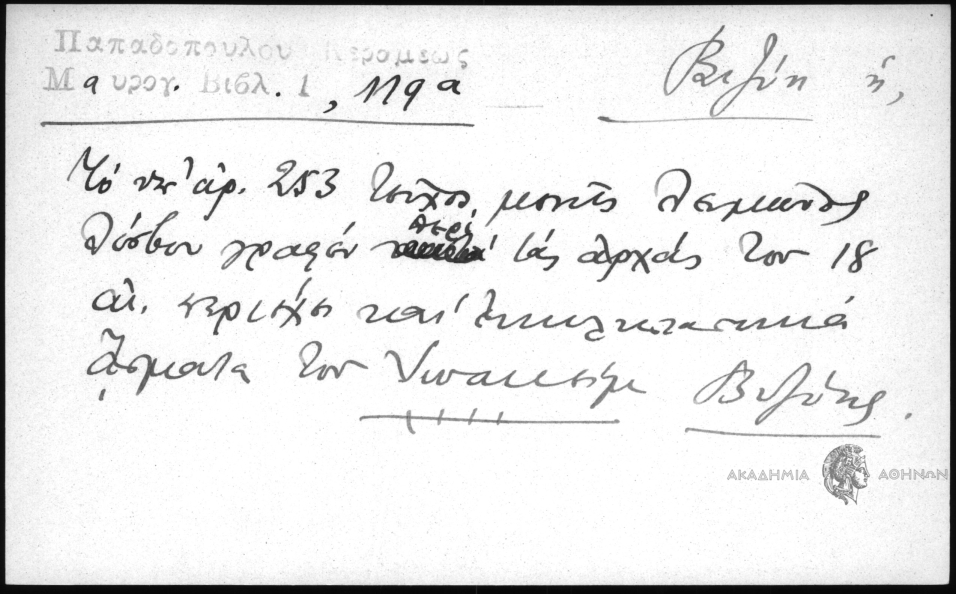 Παπαδοπούλου Κεραμέως
Μαυρογ. Βιβλ. 1, 119α
Βιζύη ἡ,
Τό ὑπ' ἀρ. 253 τεῦχος μονῆς Λειμῶνος
Λέσβου γραφέν περί τάς ἀρχάς τοῦ 18
αἰ. περιέχει καί ἐκκλησιαστικά
ᾄσματα τοῦ Βιζύης.
ΑΚΑΔΗΜΙΑ ΑΘΗΝΩΝ